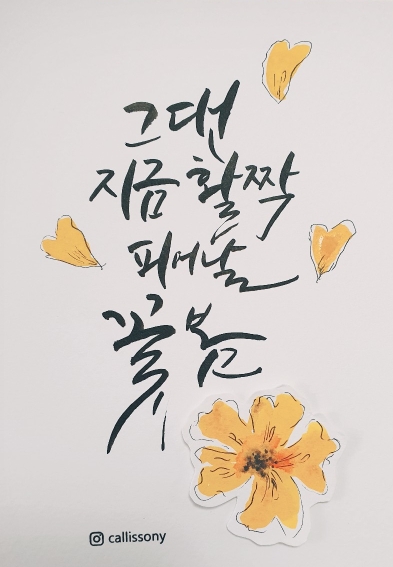 그댄
지금 활짝
피어날
꽃봄
callissony